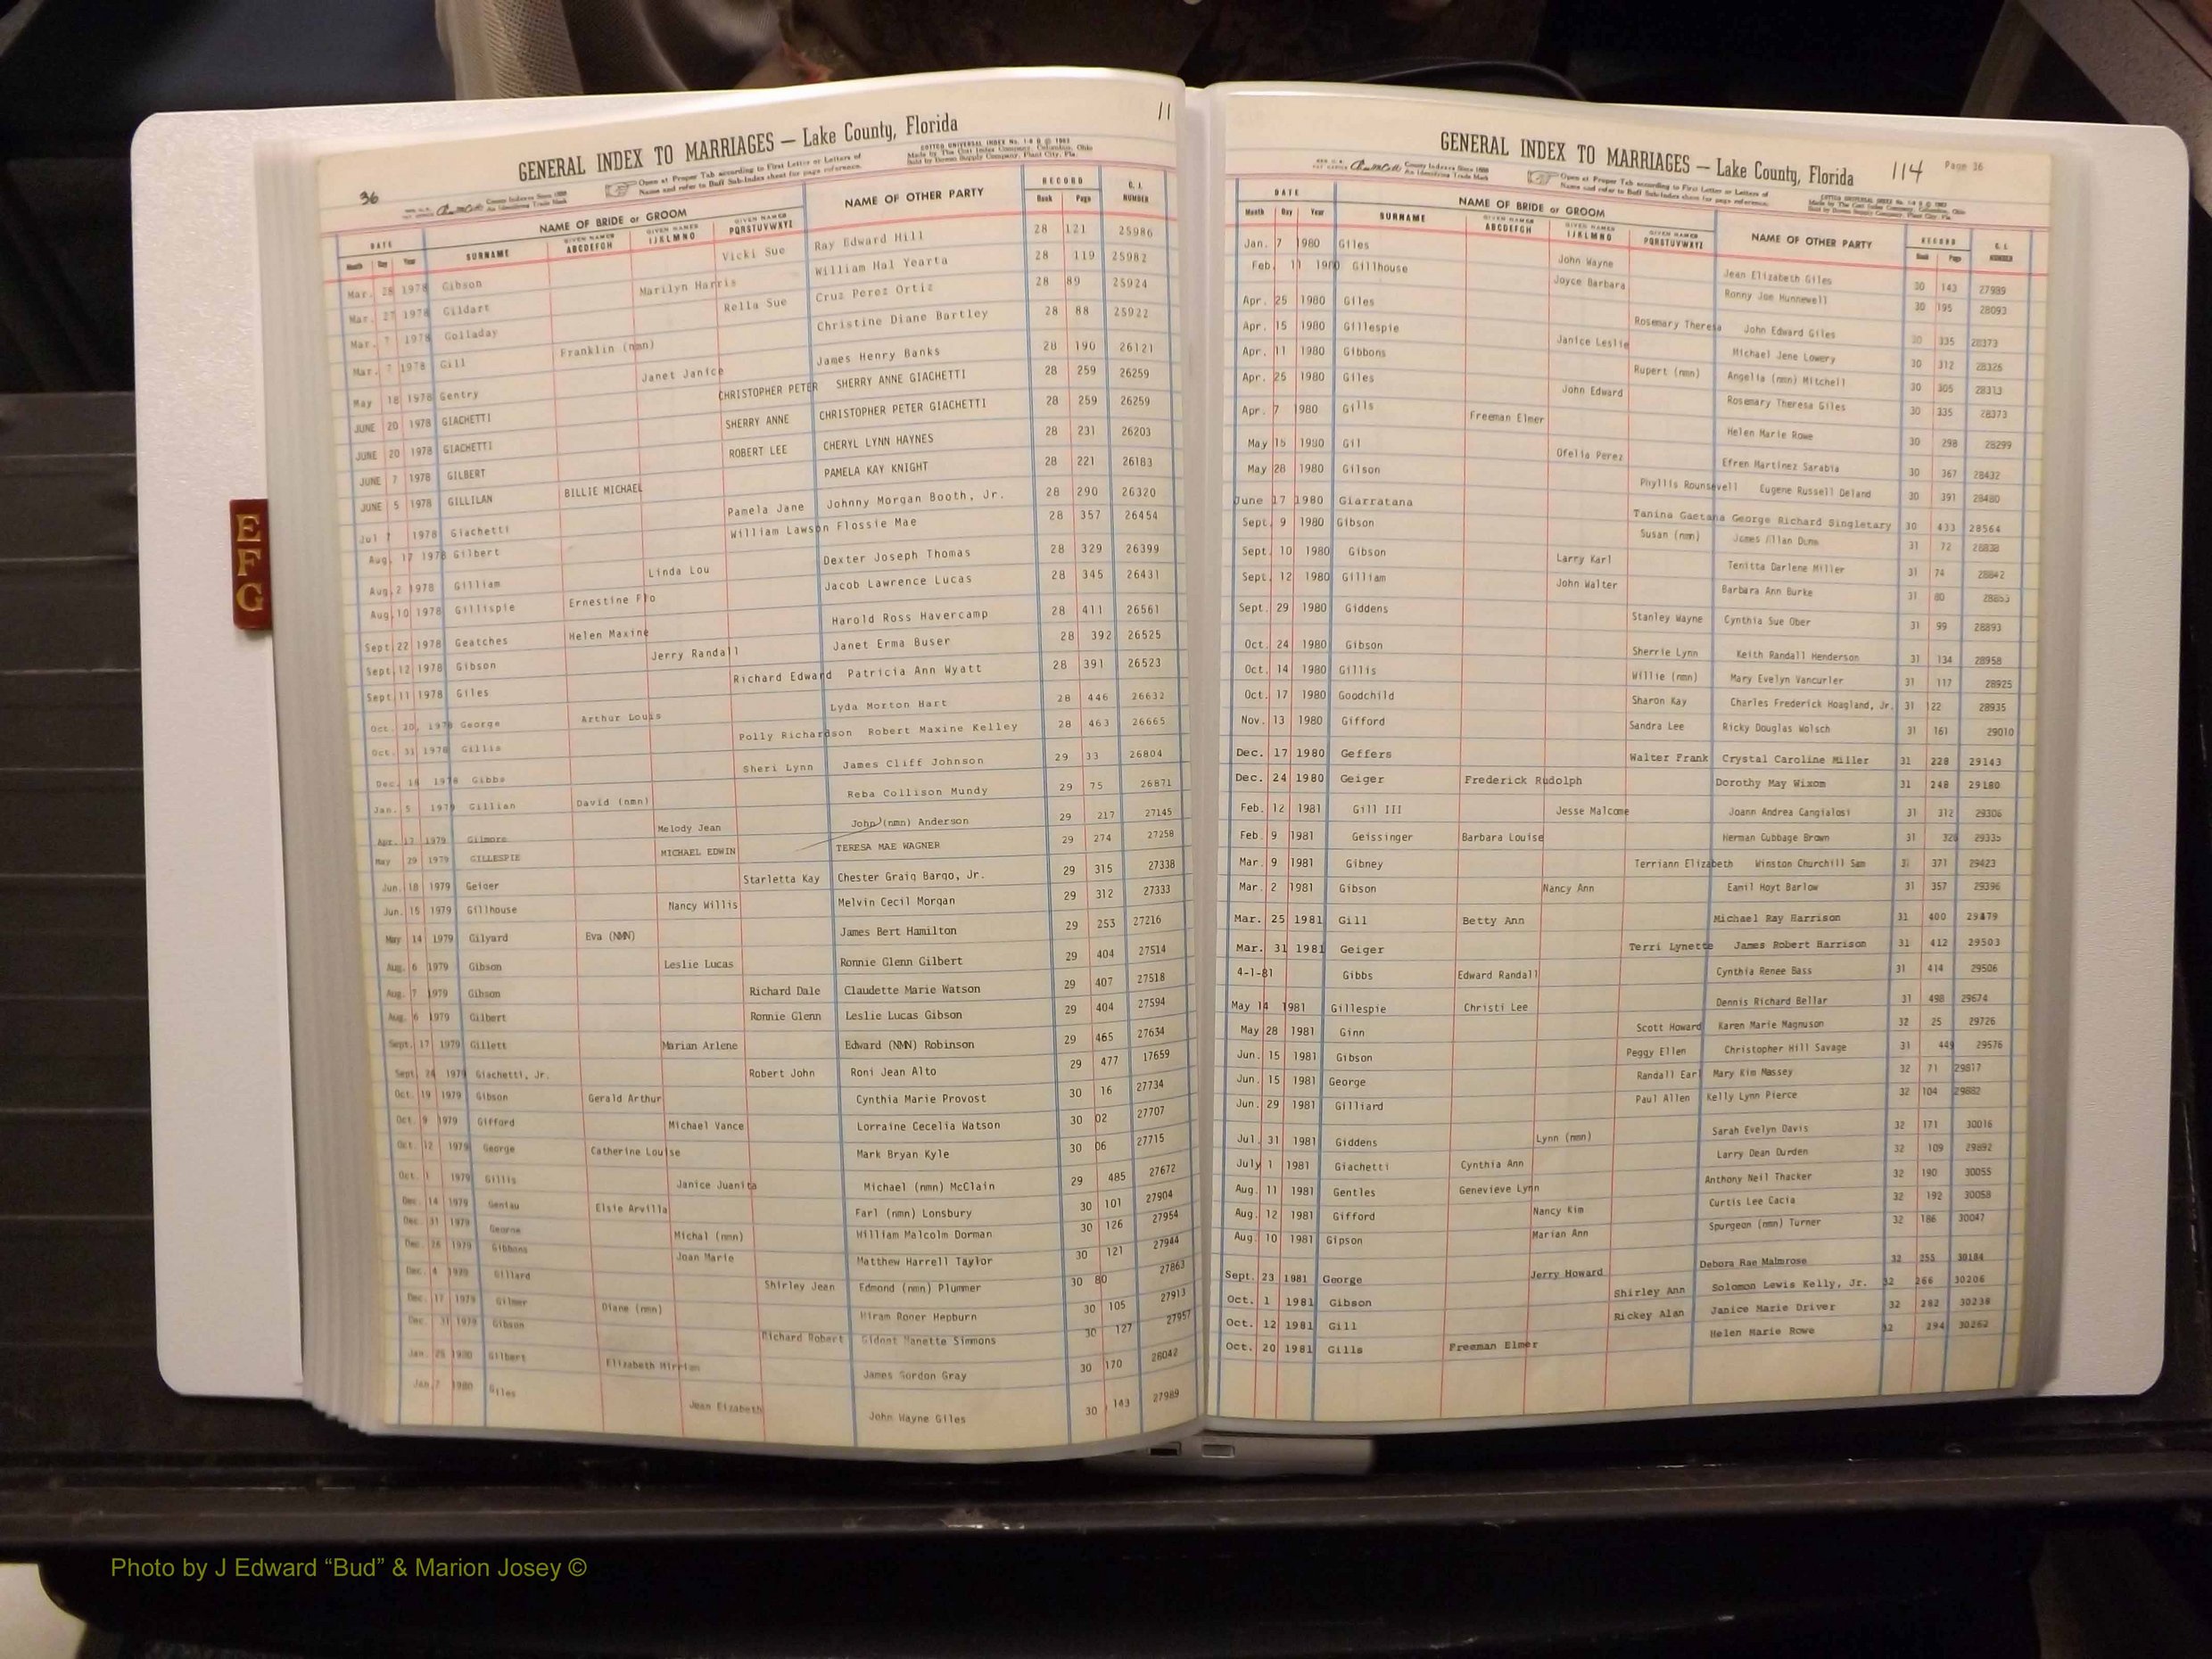 11
GENERAL INDEX TO MARRIAGES — Lake County, Florida
36
County Indexes Since 1888
An Identifying Trade Mark
Open at Proper Tab according to First Letter or Letters of
Name and refer to Buff Sub-Index sheet for page reference.
COTTED UNIVERSAL INDEX No.
Made by The Cott Index Company, Columbus, Ohio
Sold by Bowen Supply Company, Plant City, Fla.
DATE NAME OF BRIDE or GROOM NAME OF OTHER PARTY RECORD G. I. NUMBER
Month Day Year SURNAME GIVEN NAMES ABCDEFGH GIVEN NAMES IJKLMNO GIVEN NAMES PQRSTUVWXYZ Book Page
Mar. 28 1978 Gibson Vicki Sue Ray Edward Hill 28 121 25986
Mar. 27 1978 Gildart Marilyn Harris William Hal Yearta 28 119 25982
Mar. 7 1978 Golladay Rella Sue Cruz Perez Ortiz 28 89 25924
Mar. 7 1978 Gill Franklin (nmn) Christine Diane Bartley 28 88 25922
May 18 1978 Gentry Janet Janice James Henry Banks 28 190 26121
JUNE 20 1978 GIACHETTI CHRISTOPHER PETER SHERRY ANNE GIACHETTI 28 259 26259
JUNE 20 1978 GIACHETTI SHERRY ANNE CHRISTOPHER PETER GIACHETTI 28 259 26259
JUNE 7 1978 GILBERT ROBERT LEE CHERYL LYNN HAYNES 28 231 26203
JUNE 5 1978 GILLILAN BILLIE MICHAEL PAMELA KAY KNIGHT 28 221 26183
Jul 7 1978 Giachetti Pamela Jane Johnny Morgan Booth, Jr. 28 290 26320
Aug. 17 1978 Gilbert William Lawson Flossie Mae 28 357 26454
Aug. 2 1978 Gilliam Linda Lou Dexter Joseph Thomas 28 329 26399
Aug. 10 1978 Gillispie Ernestine Flo Jacob Lawrence Lucas 28 345 26431
Sept. 22 1978 Geatches Helen Maxine Harold Ross Havercamp 28 411 26561
Sept. 12 1978 Gibson Jerry Randall Janet Erma Buser 28 392 26525
Sept. 11 1978 Giles Richard Edward Patricia Ann Wyatt 28 391 26523
Oct. 20, 1978 George Arthur Louis Lyda Morton Hart 28 446 26632
Oct. 31 1978 Gillis Polly Richardson Robert Maxine Kelley 28 463 26665
Dec. 18 1978 Gibbs Sheri Lynn James Cliff Johnson 29 33 26804
Jan. 5 1979 Gillian David (nmn) Reba Collison Mundy 29 75 26871
Apr. 17 1979 Gilmore Melody Jean John (nmn) Anderson 29 217 27145
May 29 1979 GILLESPIE MICHAEL EDWIN TERESA MAE WAGNER 29 274 27258
Jun. 18 1979 Geiger Starletta Kay Chester Graig Bargo, Jr. 29 315 27338
Jun. 15 1979 Gillhouse Nancy Willis Melvin Cecil Morgan 29 312 27333
May 14 1979 Gilyard Eva (NMN) James Bert Hamilton 29 253 27216
Aug. 6 1979 Gibson Leslie Lucas Ronnie Glenn Gilbert 29 404 27514
Aug. 7 1979 Gibson Richard Dale Claudette Marie Watson 29 407 27518
Aug. 6 1979 Gilbert Ronnie Glenn Leslie Lucas Gibson 29 404 27594
Sept. 17 1979 Gillett Marian Arlene Edward (NMN) Robinson 29 465 27634
Sept. 24 1979 Giachetti, Jr. Robert John Roni Jean Alto 29 477 17659
Oct. 19 1979 Gibson Gerald Arthur Cynthia Marie Provost 30 16 27734
Oct. 9 1979 Gifford Michael Vance Lorraine Cecelia Watson 30 02 27707
Oct. 12 1979 George Catherine Louise Mark Bryan Kyle 30 06 27715
Oct. 1 1979 Gillis Janice Juanita Michael (nmn) McClain 29 485 27672
Dec. 14 1979 Geniau Elsie Arvilla Earl (nmn) Lonsbury 30 101 27904
Dec. 31 1979 George Michal (nmn) William Malcolm Dorman 30 126 27954
Dec. 26 1979 Gibbons Joan Marie Matthew Harrell Taylor 30 121 27944
Dec. 4 1979 Gillard Shirley Jean Edmond (nmn) Plummer 30 80 27863
Dec. 17 1979 Gilmer Diane (nmn) Hiram Roner Hepburn 30 105 27913
Dec. 31 1979 Gibson Richard Robert Nanette Simmons 30 127 27957
Jan. 25 1980 Gilbert Elizabeth James Gordon Gray 30 170 28042
Jan. 7 1980 Giles Jean Elzabeth John Wayne Giles 30 143 27989
GENERAL INDEX TO MARRIAGES — Lake County, Florida
114 Page 36
County Indexes Since 1888
An Identifying Trade Mark
Open at Proper Tab according to First Letter or Letters of
Name and refer to Buff Sub-Index sheet for page reference.
DATE NAME OF BRIDE or GROOM NAME OF OTHER PARTY RECORD G. I. NUMBER
Month Day Year SURNAME GIVEN NAMES ABCDEFGH GIVEN NAMES IJKLMNO GIVEN NAMES PQRSTUVWXYZ Book Page
Jan. 7 1980 Giles John Wayne Jean Elizabeth Giles 30 143 27989
Feb. 11 1980 Gillhouse Joyce Barbara Ronny Joe Hunnewell 30 195 28093
Apr. 25 1980 Giles Rosemary Theresa John Edward Giles 30 335 28373
Apr. 15 1980 Gillespie Janice Leslie Michael Jene Lowery 30 312 28326
Apr. 11 1980 Gibbons Rupert (nmn) Angelia (nmn) Mitchell 30 305 28313
Apr. 25 1980 Giles John Edward Rosemary Theresa Giles 30 335 28373
Apr. 7 1980 Gills Freeman Elmer Helen Marie Rowe 30 298 28299
May 15 1980 Gil Ofelia Perez Efren Martinez Sarabia 30 367 28432
May 28 1980 Gilson Phyllis Rounsevell Eugene Russell Deland 30 391 28480
June 17 1980 Giarratana Tanina Gaetana George Richard Singletary 30 433 28564
Sept. 9 1980 Gibson Susan (nmn) James Allan Dunn 31 72 28838
Sept. 10 1980 Gibson Larry Karl Tenitta Darlene Miller 31 74 28842
Sept. 12 1980 Gilliam John Walter Barbara Ann Burke 31 80 28853
Sept. 29 1980 Giddens Stanley Wayne Cynthia Sue Ober 31 99 28893
Oct. 24 1980 Gibson Sherrie Lynn Keith Randall Henderson 31 134 28958
Oct. 14 1980 Gillis Willie (nmn) Mary Evelyn Vancurler 31 117 28925
Oct. 17 1980 Goodchild Sharon Kay Charles Frederick Hoagland, Jr. 31 122 28935
Nov. 13 1980 Gifford Sandra Lee Ricky Douglas Wolsch 31 161 29010
Dec. 17 1980 Geffers Walter Frank Crystal Caroline Miller 31 228 29143
Dec. 24 1980 Geiger Frederick Rudolph Dorothy May Wixom 31 248 29180
Feb. 12 1981 Gill III Jesse Malcome Joann Andrea Cangialosi 31 312 29306
Feb. 9 1981 Geissinger Barbara Louise Herman Cubbage Brown 31 326 29335
Mar. 9 1981 Gibney Terriann Elizabeth Winston Churchill Sam 31 371 29423
Mar. 2 1981 Gibson Nancy Ann Eamil Hoyt Barlow 31 357 29396
Mar. 25 1981 Gill Betty Ann Michael Ray Harrison 31 400 29479
Mar. 31 1981 Geiger Terri Lynette James Robert Harrison 31 412 29503
4-1-81 Gibbs Edward Randall Cynthia Renee Bass 31 414 29506
May 14 1981 Gillespie Christi Lee Dennis Richard Bellar 31 498 29674
May 28 1981 Ginn Scott Howard Karen Marie Magnuson 32 25 29726
Jun. 15 1981 Gibson Peggy Ellen Christopher Hill Savage 31 449 29576
Jun. 15 1981 George Randall Earl Mary Kim Massey 32 71 29817
Jun. 29 1981 Gilliard Paul Allen Kelly Lynn Pierce 32 104 29882
Jul. 31 1981 Giddens Lynn (nmn) Sarah Evelyn Davis 32 171 30016
July 1 1981 Giachetti Cynthia Ann Larry Dean Durden 32 109 29892
Aug. 11 1981 Gentles Genevieve Lynn Anthony Neil Thacker 32 190 30055
Aug. 12 1981 Gifford Nancy Kim Curtis Lee Cacia 32 192 30058
Aug. 10 1981 Gipson Marian Ann Spurgeon (nmn) Turner 32 186 30047
Sept. 23 1981 George Jerry Howard Debora Rae Malmrose 32 255 30184
Oct. 1 1981 Gibson Shirley Ann Solomon Lewis Kelly, Jr. 32 266 30206
Oct. 12 1981 Gill Rickey Alan Janice Marie Driver 32 282 30238
Oct. 20 1981 Gills Freeman Elmer Helen Marie Rowe 32 294 30262
E
F
G
Photo by J Edward “Bud” & Marion Josey ©